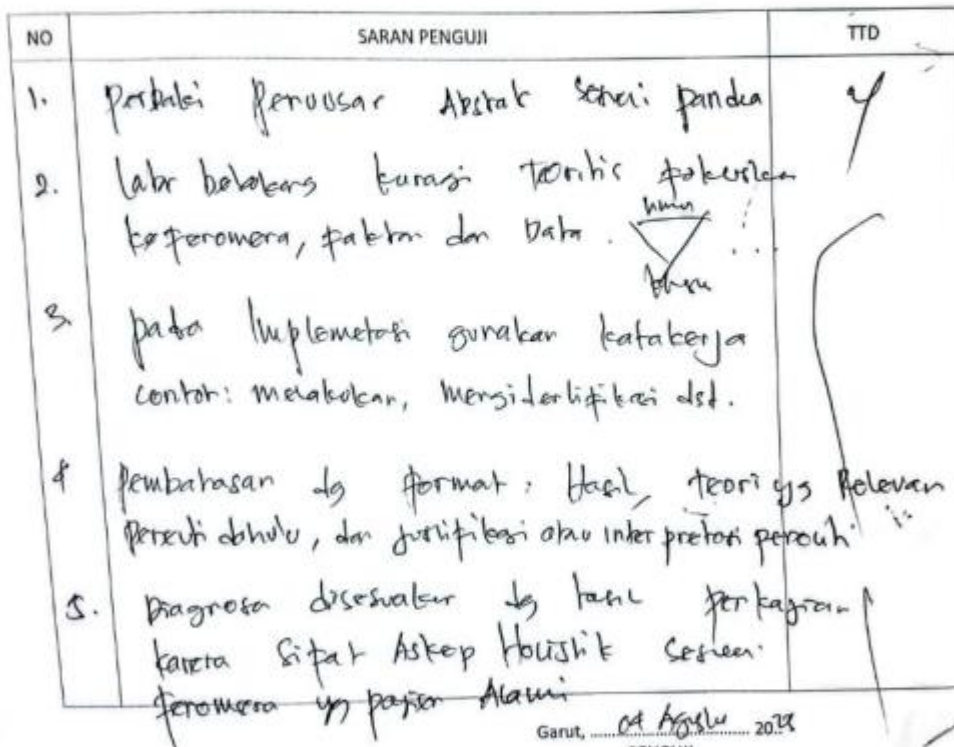 NO SARAN PENGUJI TTD
1. Perbaiki Penulisan Abstrak sesuai panduan
2. latar belakang kurangi teoritis fokuskan
ke fenomena, faktor dan Data. umum
khusus
3. pada Implementasi gunakan katakerja
contoh: melakukan, mengidentifikasi dst.
4 Pembahasan dg format: Hasil, teori yg Relevan
peneliti dahulu, dan justifikasi atau interpretasi peneliti
5. Diagnosa disesuaikan dg hasil pengkajian
karena sifat Askep Holistik sesuai
fenomena yg pasien Alami
Garut, 04 Agustus 2023